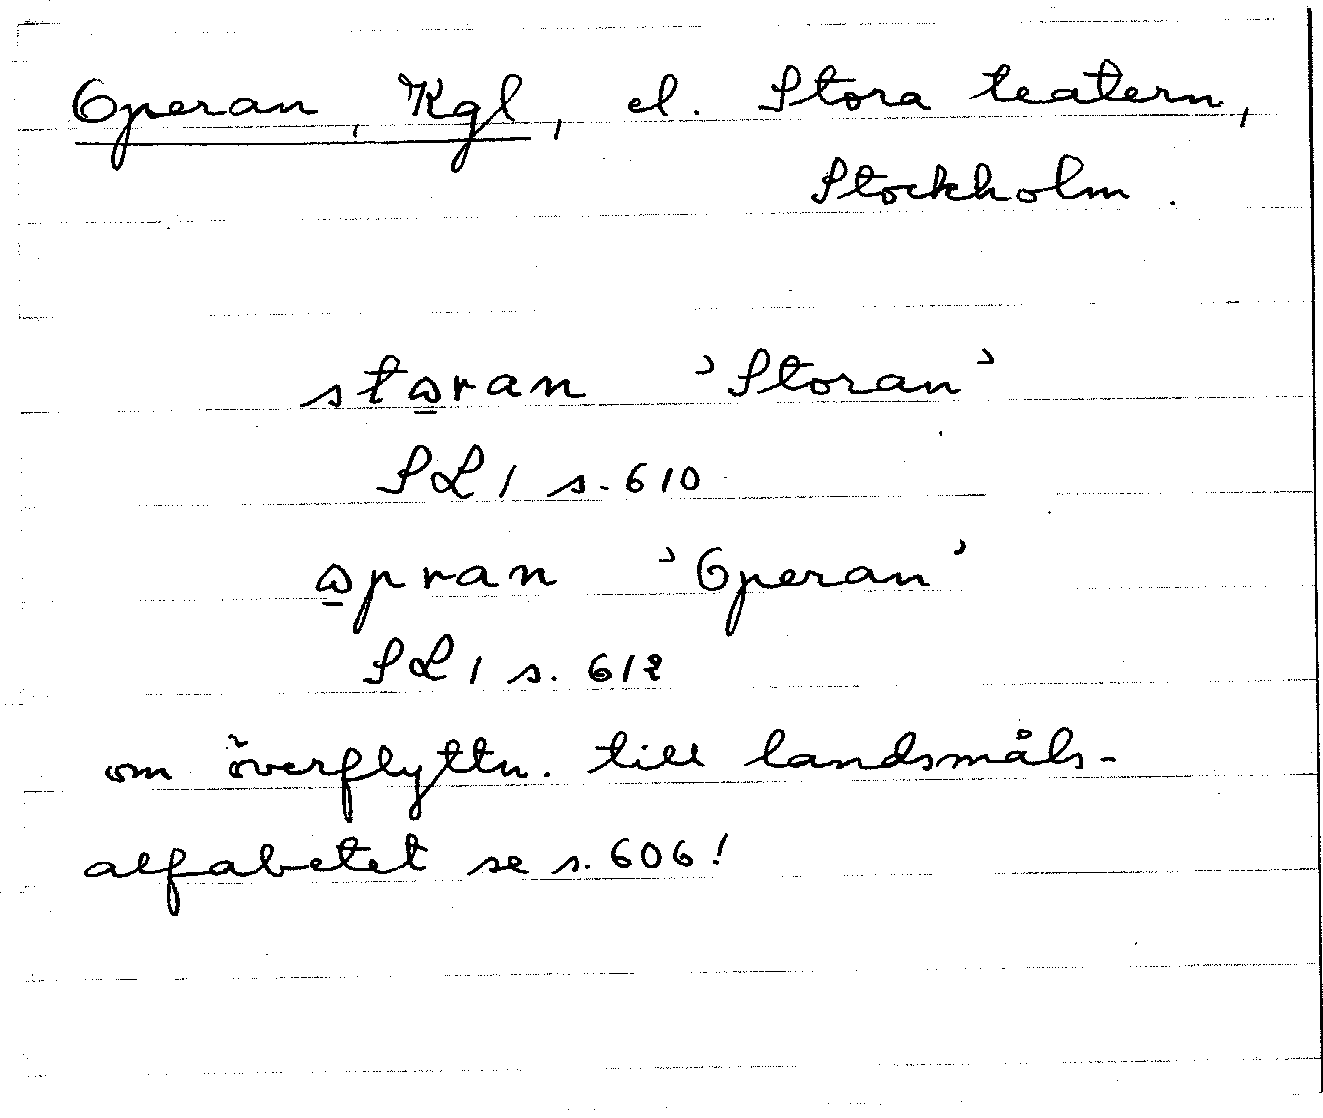 Operan, Kgl, el. Stora teatern,
Stockholm.
stɷ̱ran 'Storan'
SL 1 s. 610
ɷ̱pran 'Operan'
SL 1 s. 612
om överflyttn. till landsmåls-
alfabetet se s. 606!